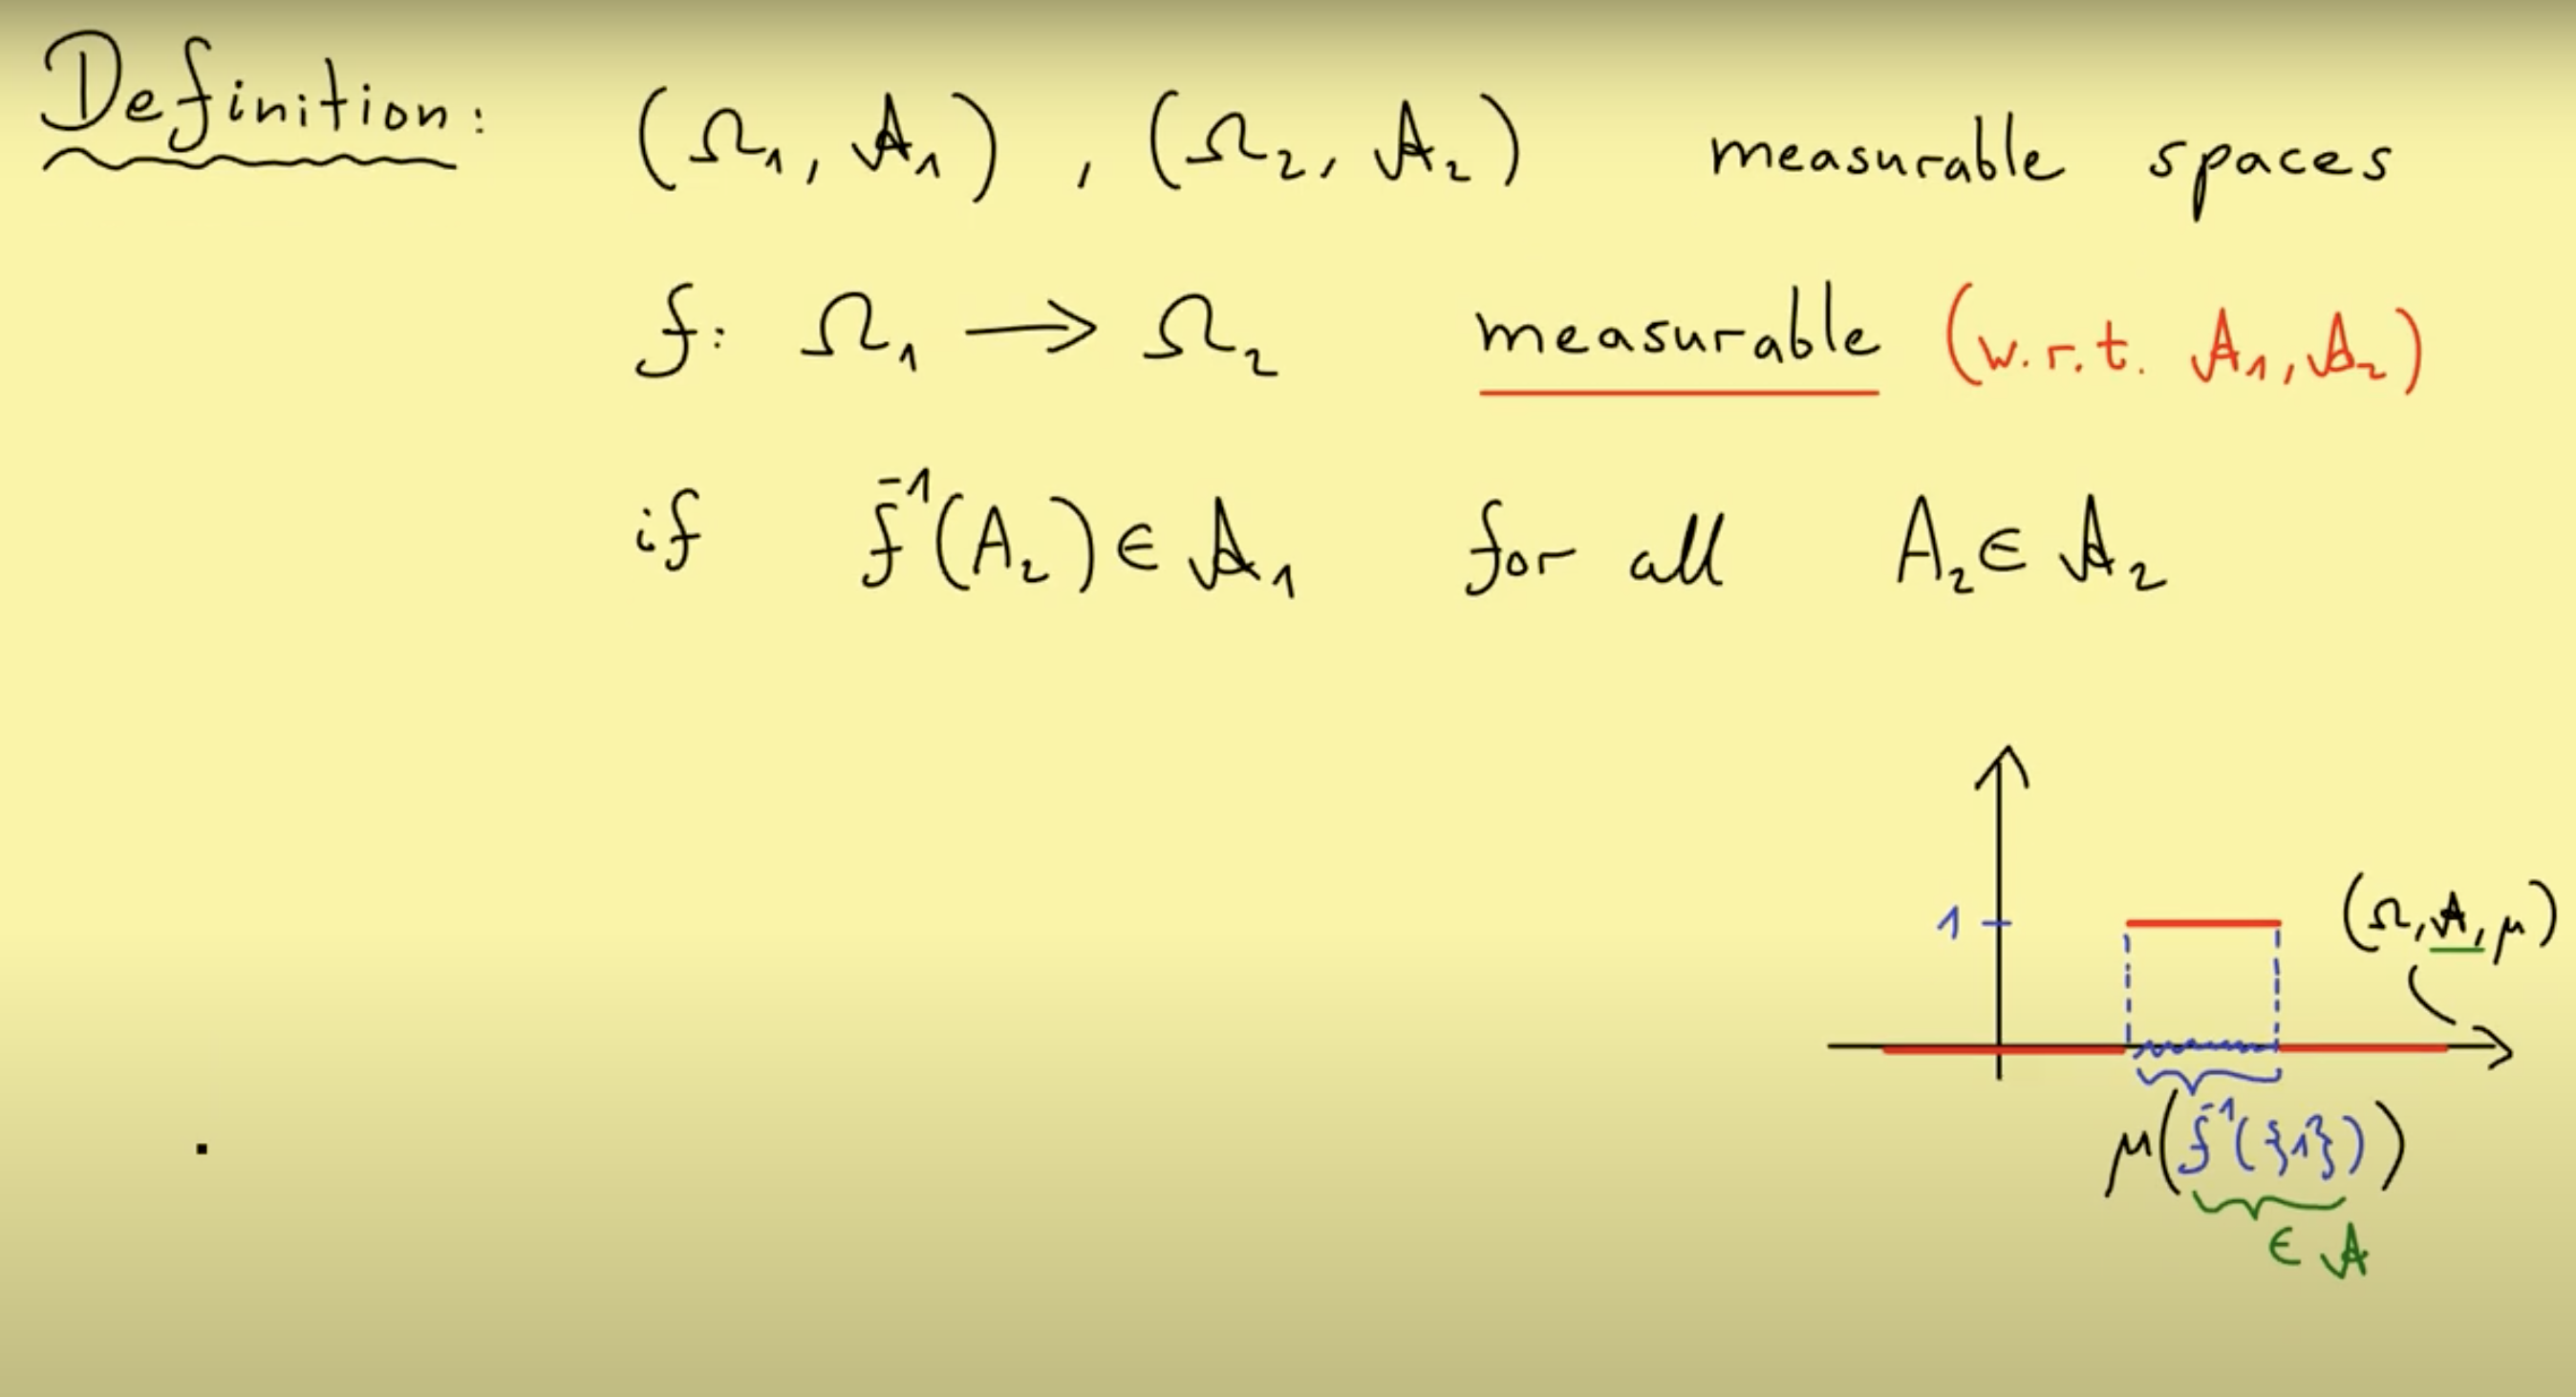 Definition: (Ω₁, 𝒜₁), (Ω₂, 𝒜₂) measurable spaces
f: Ω₁ → Ω₂ measurable (w.r.t. 𝒜₁, 𝒜₂)
if f⁻¹(A₂) ∈ 𝒜₁ for all A₂ ∈ 𝒜₂
1
(Ω, 𝒜, μ)
μ(f⁻¹({1}))
∈ 𝒜